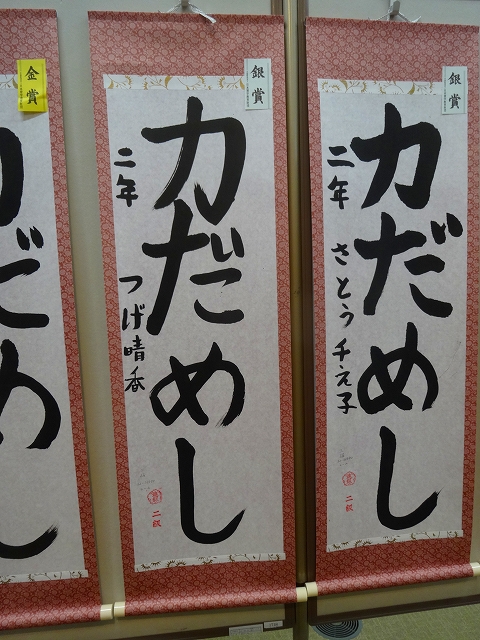 銀賞
力だめし
二年 さとう千え子
二級
銀賞
力だめし
二年 つげ晴香
二級
金賞
だめし